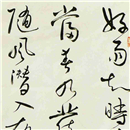 好雨知時
當春乃發
隨風潛入